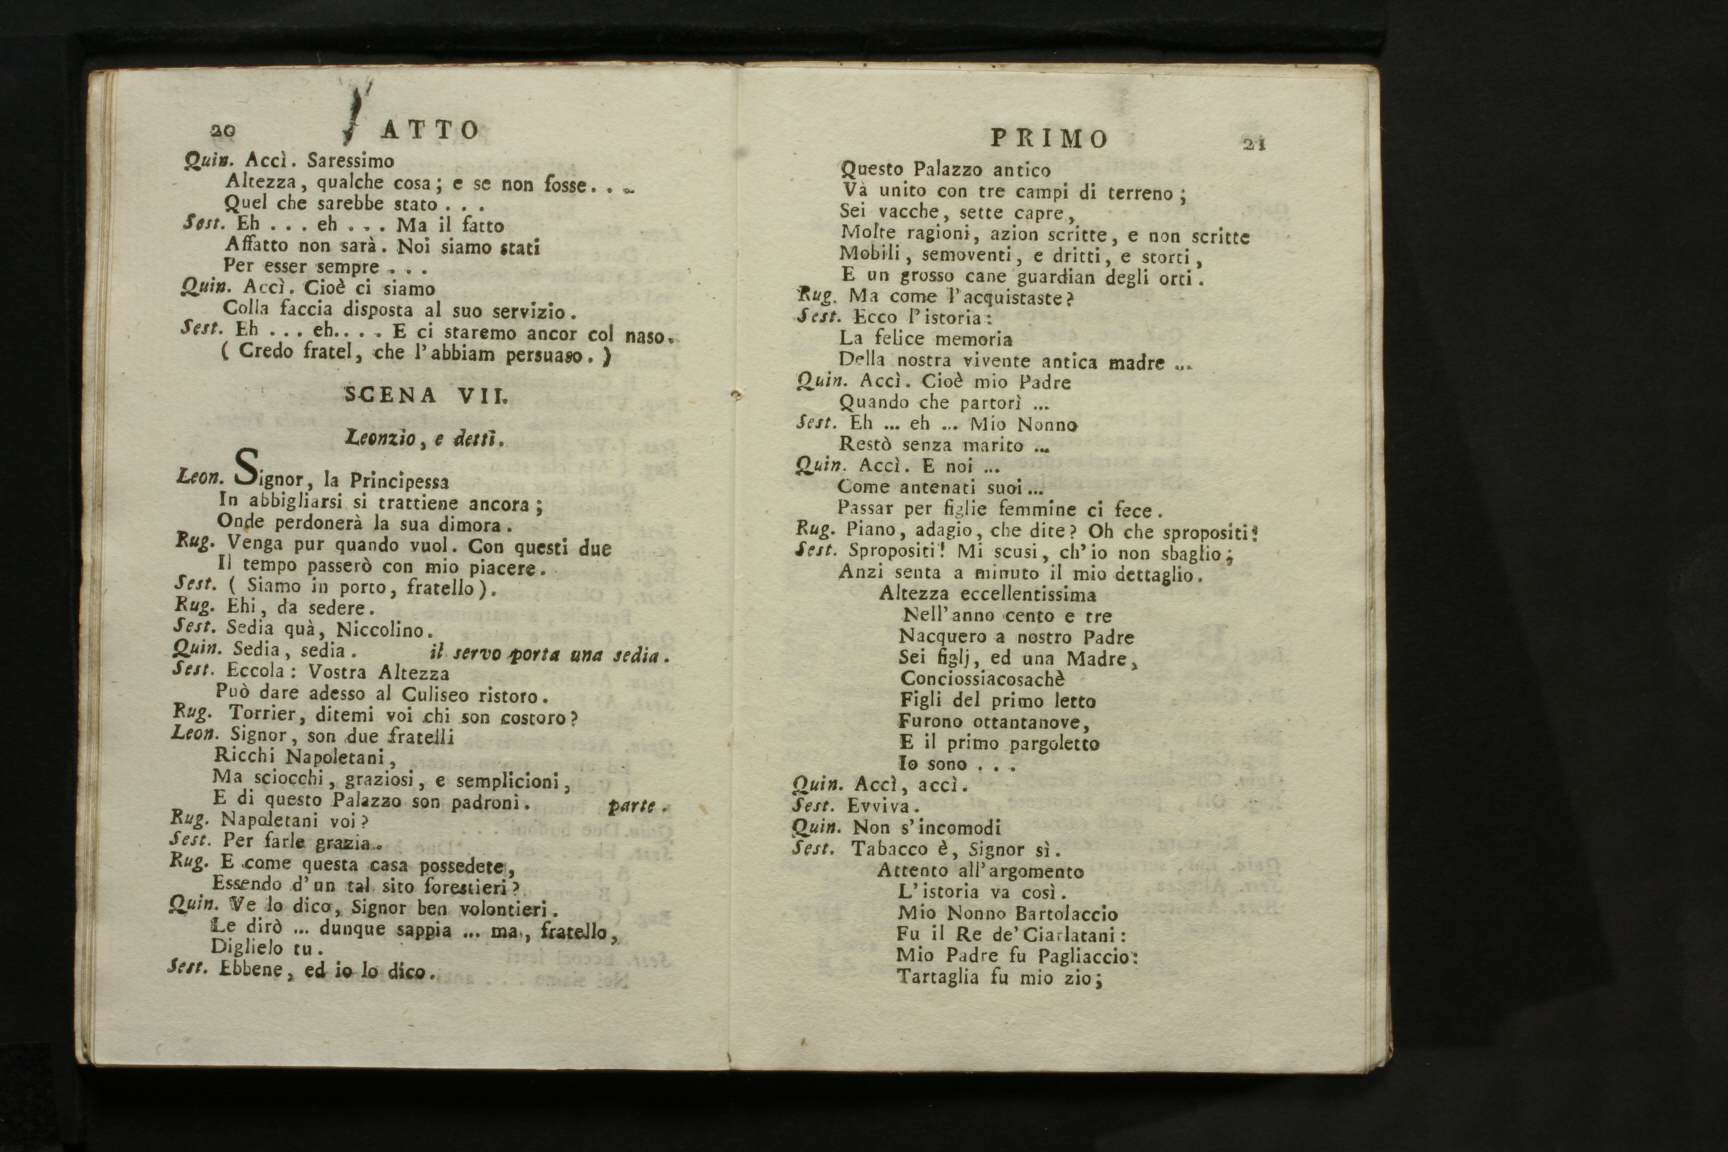 20 ATTO
Quin. Accì. Saressimo
Altezza, qualche cosa; e se non fosse...
Quel che sarebbe stato...
Sest. Eh... eh... Ma il fatto
Affatto non sarà. Noi siamo stati
Per esser sempre...
Quin. Accì. Cioè ci siamo
Colla faccia disposta al suo servizio.
Sest. Eh... eh.... E ci staremo ancor col naso.
( Credo fratel, che l'abbiam persuaso. )
SCENA VII.
Leonzio, e detti.
Leon. Signor, la Principessa
In abbigliarsi si trattiene ancora;
Onde perdonerà la sua dimora.
Rug. Venga pur quando vuol. Con questi due
Il tempo passerò con mio piacere.
Sest. ( Siamo in porto, fratello).
Rug. Ehi, da sedere.
Sest. Sedia quà, Niccolino.
Quin. Sedia, sedia. il servo porta una sedia.
Sest. Eccola: Vostra Altezza
Può dare adesso al Culiseo ristoro.
Rug. Torrier, ditemi voi chi son costoro?
Leon. Signor, son due fratelli
Ricchi Napoletani,
Ma sciocchi, graziosi, e semplicioni,
E di questo Palazzo son padroni. parte.
Rug. Napoletani voi?
Sest. Per farle grazia.
Rug. E come questa casa possedete,
Essendo d'un tal sito forestieri?
Quin. Ve lo dico, Signor ben volontieri.
Le dirò ... dunque sappia ... ma, fratello,
Diglielo tu.
Sest. Ebbene, ed io lo dico.
PRIMO 21
Questo Palazzo antico
Và unito con tre campi di terreno;
Sei vacche, sette capre,
Molte ragioni, azion scritte, e non scritte
Mobili, semoventi, e dritti, e storti,
E un grosso cane guardian degli orti.
Rug. Ma come l'acquistaste?
Sest. Ecco l'istoria:
La felice memoria
Della nostra vivente antica madre ...
Quin. Accì. Cioè mio Padre
Quando che partorì ...
Sest. Eh ... eh ... Mio Nonno
Restò senza marito ...
Quin. Accì. E noi ...
Come antenati suoi ...
Passar per figlie femmine ci fece.
Rug. Piano, adagio, che dite? Oh che spropositi!
Sest. Spropositi! Mi scusi, ch'io non sbaglio;
Anzi senta a minuto il mio dettaglio.
Altezza eccellentissima
Nell'anno cento e tre
Nacquero a nostro Padre
Sei figlj, ed una Madre,
Conciossiacosachè
Figli del primo letto
Furono ottantanove,
E il primo pargoletto
Io sono...
Quin. Accì, accì.
Sest. Evviva.
Quin. Non s'incomodi
Sest. Tabacco è, Signor sì.
Attento all'argomento
L'istoria va così.
Mio Nonno Bartolaccio
Fu il Re de' Ciarlatani:
Mio Padre fu Pagliaccio:
Tartaglia fu mio zio;